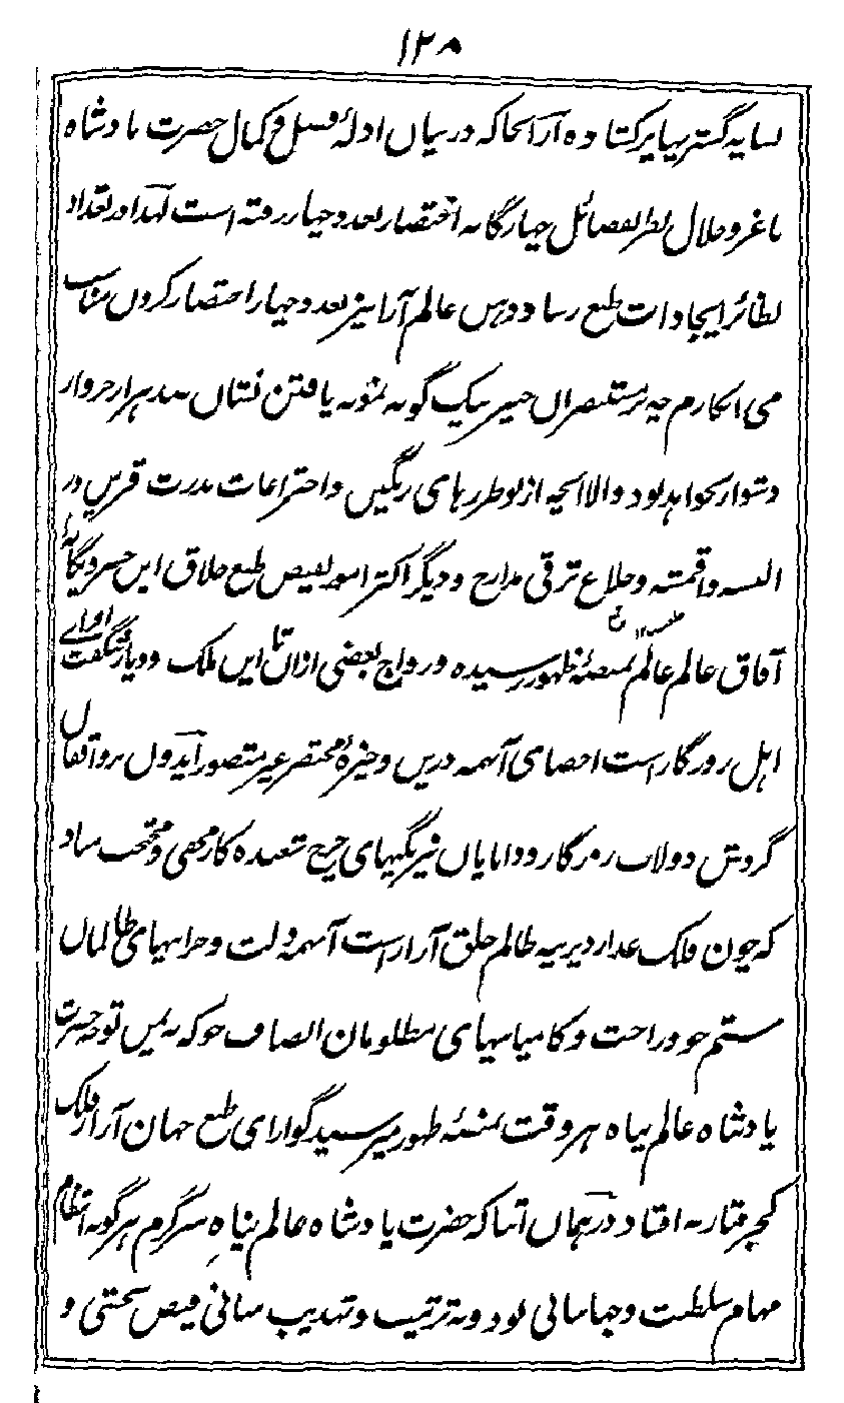 ۱۲۸
بسایه گستر بیابر کشاده آرا بجا که در بیان ادلهٔ فضل و کمال حضرت بادشاه
با عز و جلال بطر بفصائل چهارگانه اختصار بعدد چهار رفته است لهذا در تعداد
نظائر ایجادات طبع رسا و ذهن عالم آرا نیز بعدد چهار اختصار کردن مناسب
می انگارم چه بر مستبصران خبیر یک گونه نمونه یافتن نشان صد هزار خروار
دشوار نخواهد بود والا آنچه از نو طرزهای رنگین و اختراعات ندرت قرین در
البسه و اقمشه و خلاع ترقی مدارج و دیگر اکثر امور بفیض طبع خلاق این خسرو یگانهٔ
آفاق عالم عالم بمنصهٔ ظهور رسیده و رواج بعضی ازان تا این ملک و دیار شگفت افزای
اهل روزگار است احصای آنهمه درین وجیزهٔ مختصر غیر متصور آیدون بر واقفان
گردش دولاب روزگار و دانایان نیرنگیهای چرخ شعبده کار مخفی و محتجب مباد
که چون فلک غدار دیرینه ظالم خلق آزار است آنهمه ذلت و خرابیهای ظالمان
ستم جو و راحت و کامیابیهای مظلومان انصاف جو که به یمن توجه حضرت
پادشاه عالم پناه هر وقت بمنصهٔ ظهور میرسید گوارای طبع جهان آزار فلک
کجرفتار نه افتاد در همان اثنا که حضرت پادشاه عالم پناه سرگرم هر گونه انتظام
مهام سلطنت و جهانبانی بود و به ترتیب و تهذیب مبانی فیض بخشی و